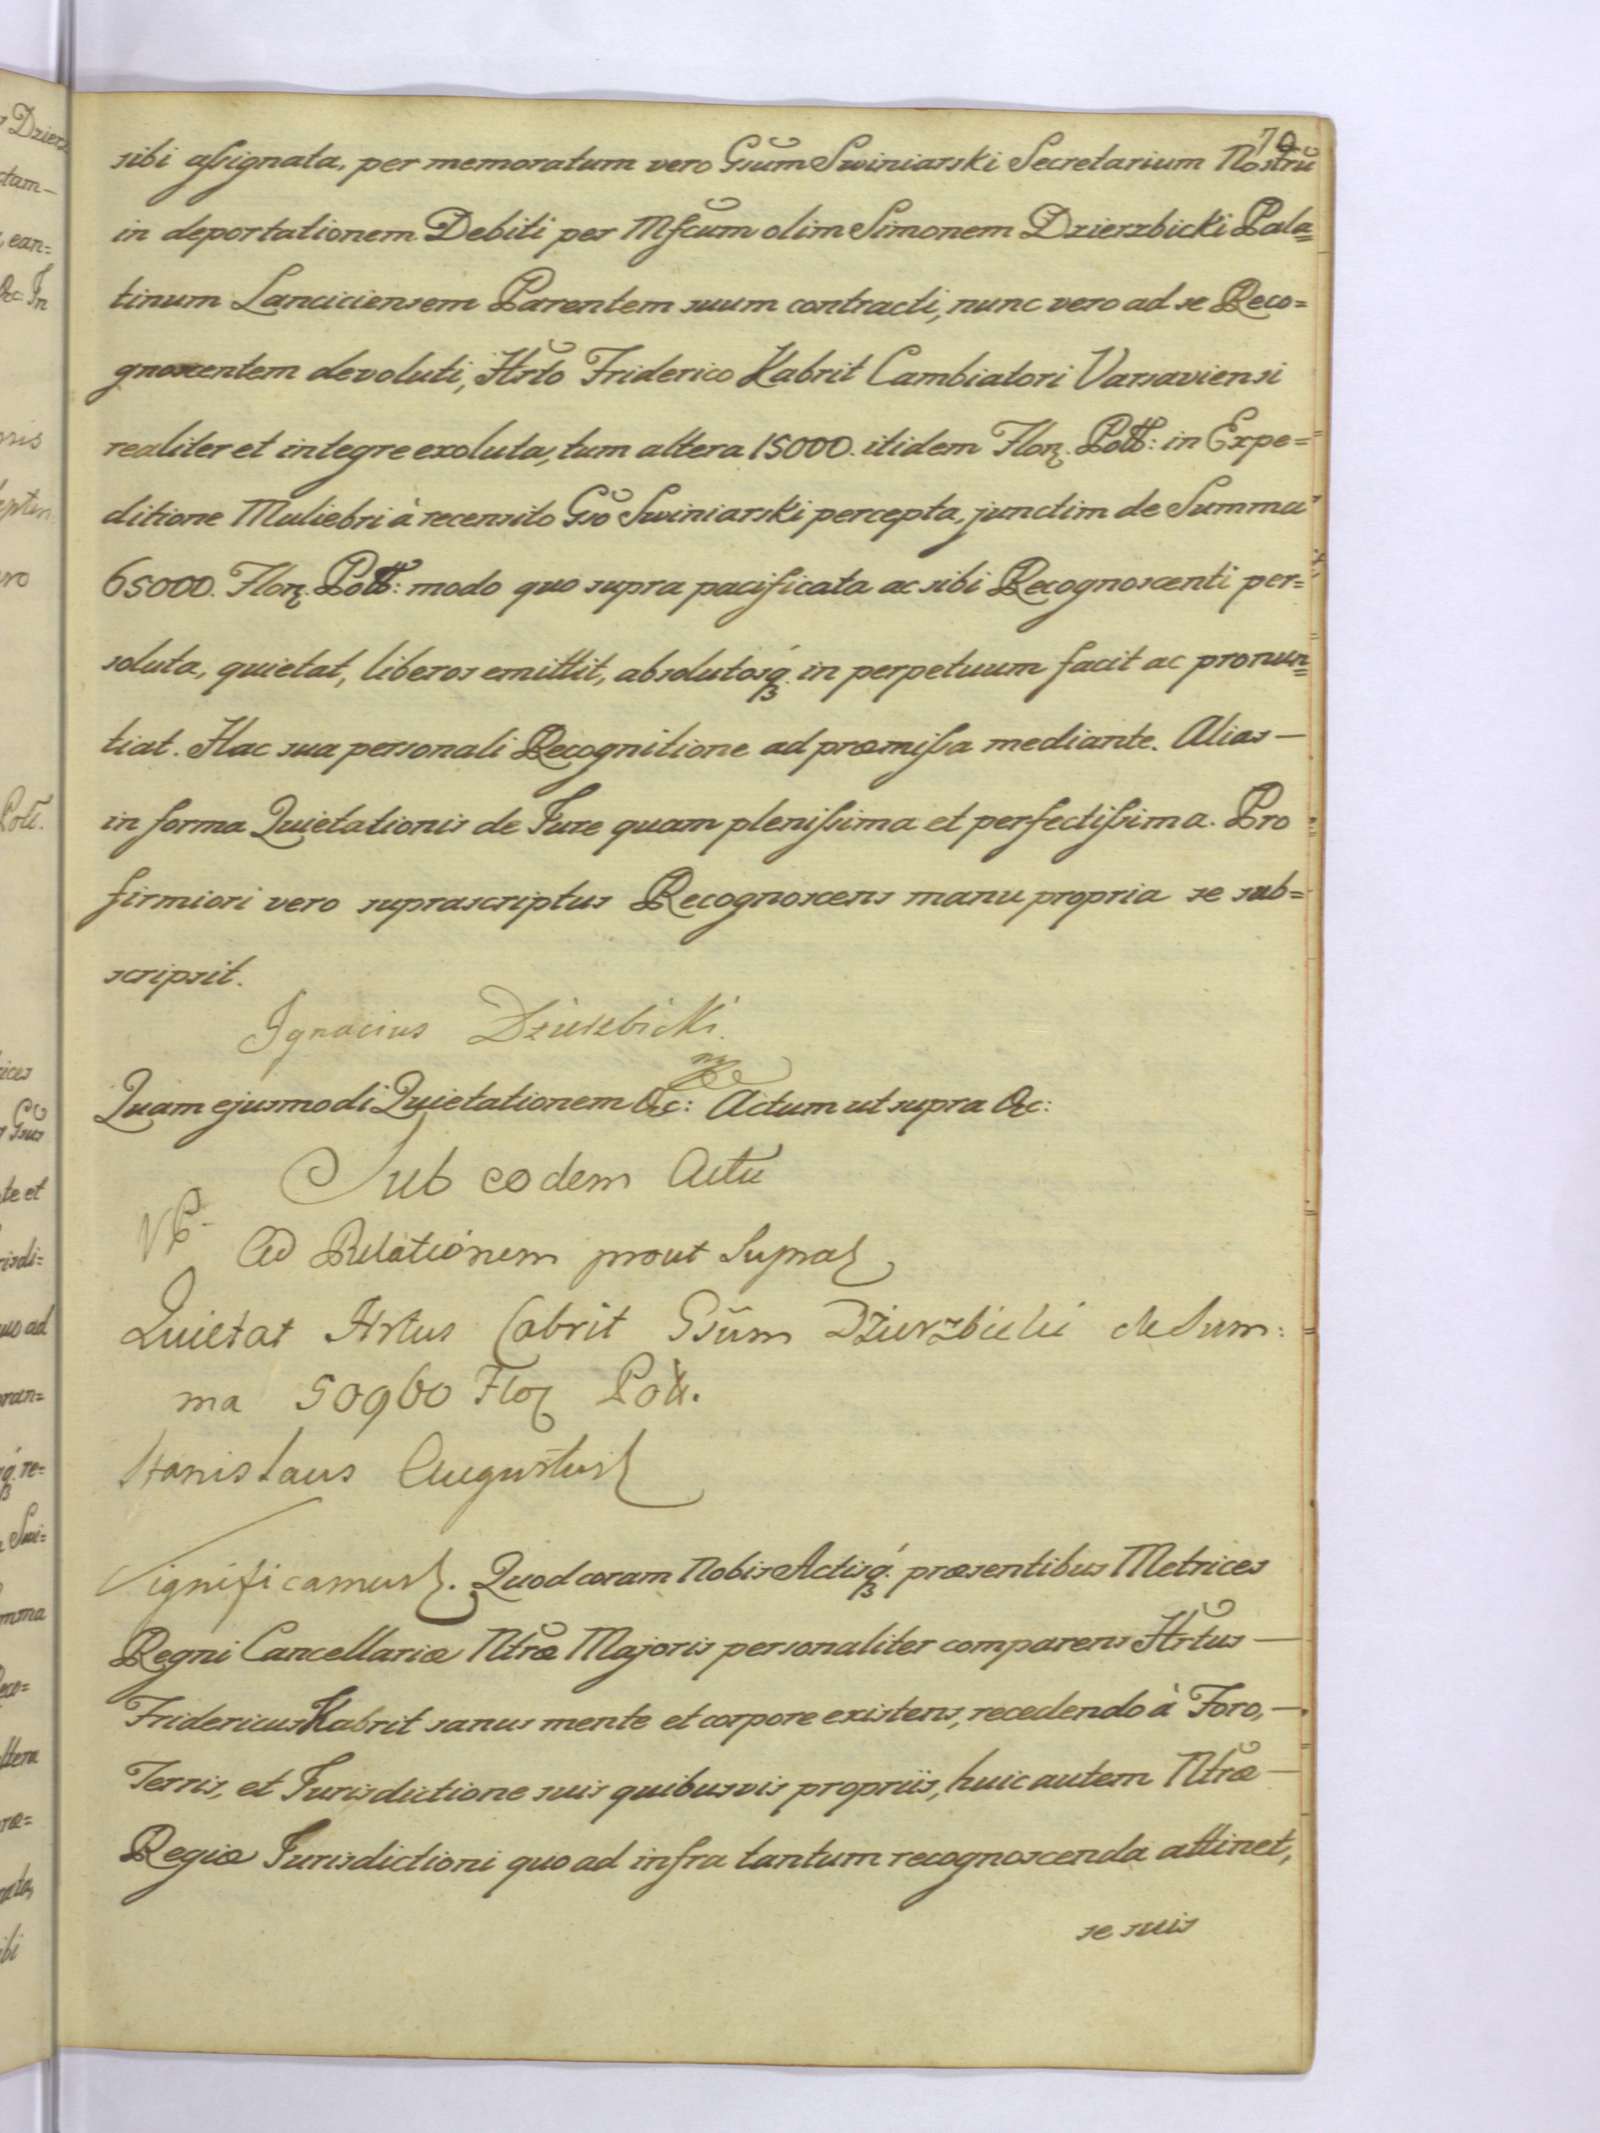 70
sibi assignata, per memoratum vero Gsum Swiniarski Secretarium Nostrū
in deportationem Debiti per Mfcum olim Simonem Dzierzbicki Pala=
tinum Lanciciensem Parentem suum contracti, nunc vero ad se Reco=
gnoscentem devoluti, Hrto Friderico Kabrit Cambiatori Varsaviensi
realiter et integre exoluta, tum altera 15000. itidem Flor. Poll: in Expe=
ditione Muliebri à recensito Gso Swiniarski percepta, junctim de Summa
65000. Flor. Poll: modo quo supra pacificata ac sibi Recognoscenti per=
soluta, quietat, liberos emittit, absolutosq́ꝫ in perpetuum facit ac pronun=
tiat. Hac sua personali Recognitione ad præmissa mediante. Alias —
in forma Quietationis de Jure quam plenissima et perfectissima. Pro
firmiori vero suprascriptus Recognoscens manu propria se sub=
scripsit.
Ignacius Dzierzbicki.
Quam ejusmodi Quietationem &c: Actum ut supra &c:
Sub eodem Actu
Ad Relationem prout Supra
Quietat Hrtus Cabrit Gsum Dzierzbicki de Sum:
ma 50960 Flor Poll.
Stanislaus Augustus
Significamus. Quod coram Nobis Actisq́ꝫ præsentibus Metrices
Regni Cancellariæ Ntræ Majoris personaliter comparens Hrtus —
Fridericus Kabrit sanus mente et corpore existens, recedendo à Foro, —
Terris, et Jurisdictione suis quibusvis propriis, huic autem Ntræ —
Regiæ Jurisdictioni quo ad infra tantum recognoscenda attinet,
se suis